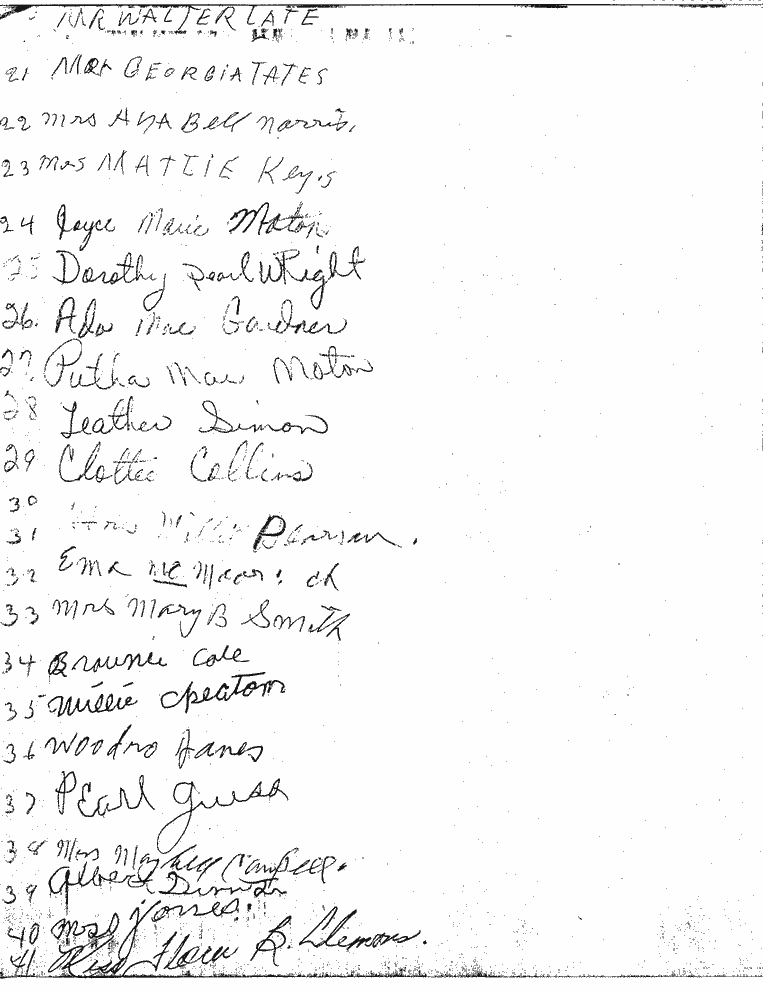 MR WALTER LATE
21 MRS GEORGIA TATES
22 mrs ANA Bell norris,
23 mrs MATTIE Keys
24 Joyce Marie Moton
25 Dorothy pearl WRight
26. Ada Mae Gardner
27. Putha Mae Moton
28 Leather Simon
29 Clottie Collins
30
31 Mrs Willie Pearson.
32 Ema Mc
33 mrs Mary B Smith
34 Brownie Cole
35 Millie Cheatom
36 Woodro Janes
37 PEarl Guess
38 Mrs Campbell.
39 Albert
40 mrs Jones.
41 Miss Flora B. Clemons.